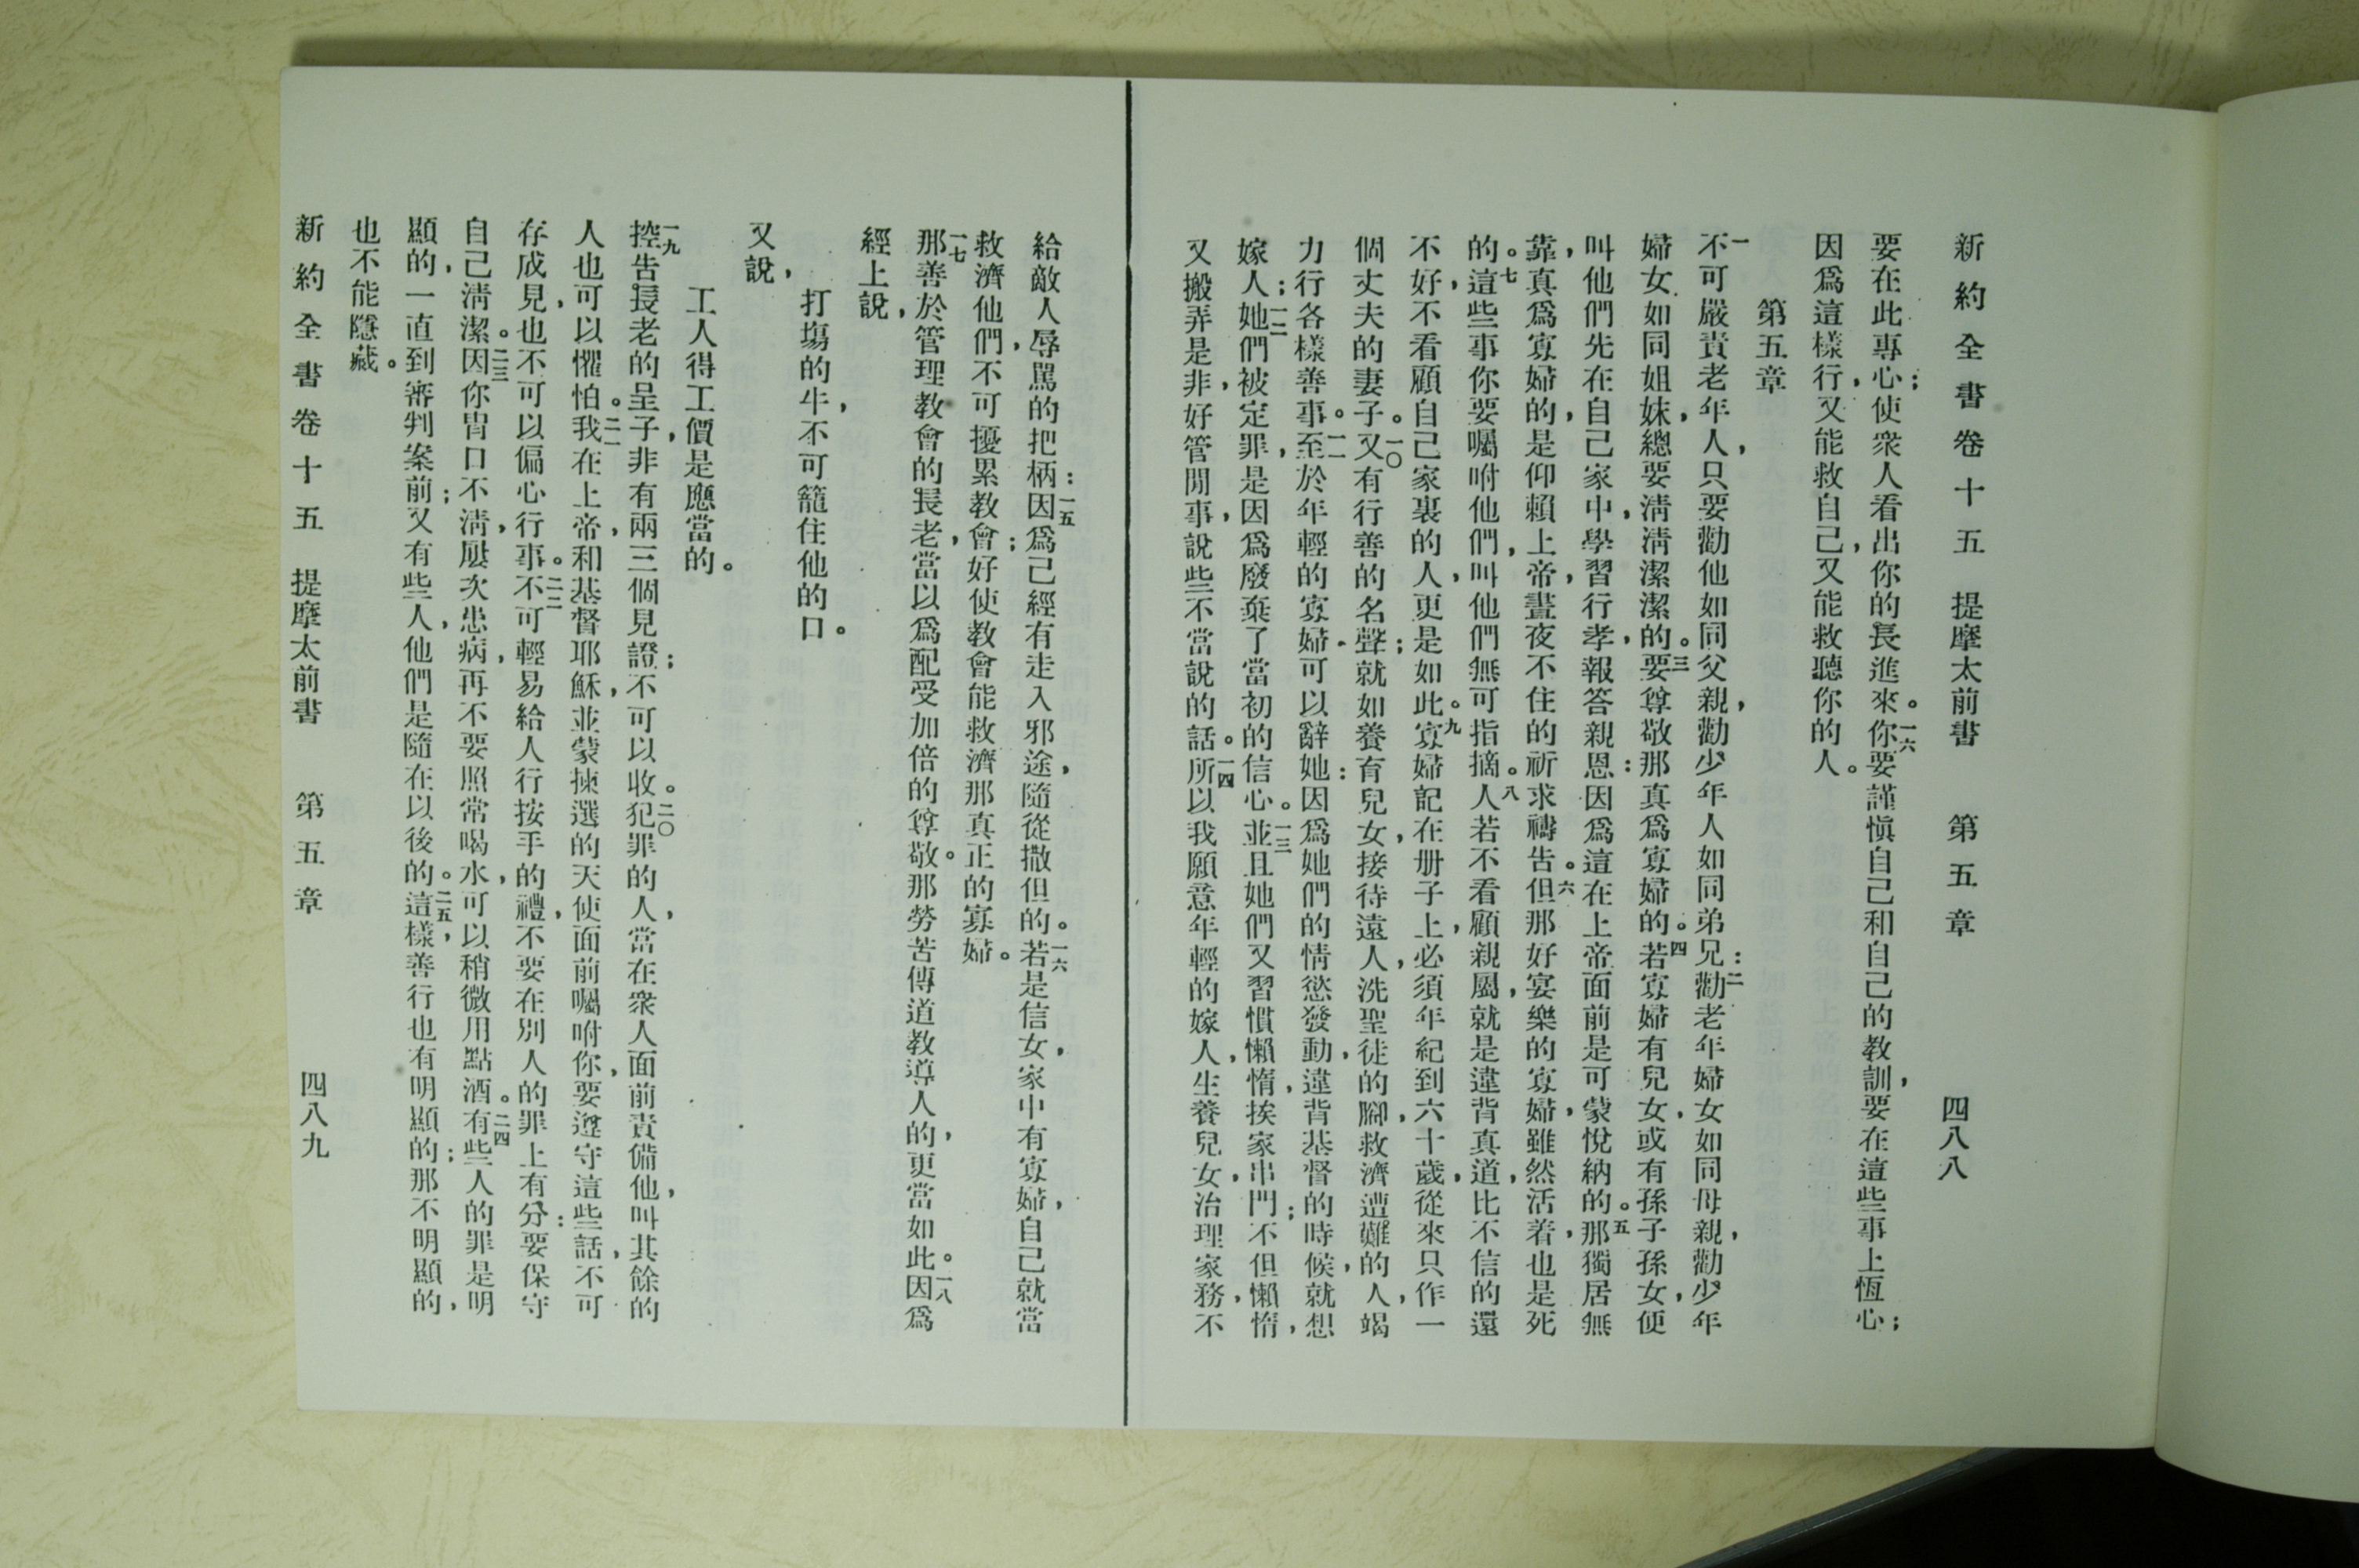 新約全書卷十五 提摩太前書 第五章 四八八
要在此專心；使衆人看出你的長進來。一六你要謹愼自己和自己的教訓，要在這些事上恆心；
因爲這樣行，又能救自己，又能救聽你的人。
第五章
一不可嚴責老年人，只要勸他如同父親，勸少年人如同弟兄：二勸老年婦女如同母親，勸少年
婦女如同姐妹，總要淸淸潔潔的。三要尊敬那眞爲寡婦的。四若寡婦有兒女，或有孫子孫女，便
叫他們先在自己家中，學習行孝，報答親恩：因爲這在上帝面前是可蒙悅納的。五那獨居無
靠，眞爲寡婦的，是仰賴上帝，晝夜不住的祈求禱告。六但那好宴樂的寡婦，雖然活着，也是死
的。七這些事你要囑咐他們，叫他們無可指摘。八人若不看顧親屬，就是違背眞道，比不信的還
不好，不看顧自己家裏的人，更是如此。九寡婦記在册子上，必須年紀到六十歲，從來只作一
個丈夫的妻子。一〇又有行善的名聲；就如養育兒女，接待遠人，洗聖徒的腳，救濟遭難的人，竭
力行各樣善事。一一至於年輕的寡婦，可以辭她：因爲她們的情慾發動，違背基督的時候，就想
嫁人；一二她們被定罪，是因爲廢棄了當初的信心。一三並且她們又習慣懶惰，挨家串門；不但懶惰，
又搬弄是非，好管閒事，說些不當說的話。一四所以我願意年輕的嫁人，生養兒女，治理家務，不
給敵人辱罵的把柄：一五因爲已經有走入邪途，隨從撒但的。一六若是信女，家中有寡婦，自己就當
救濟他們，不可擾累教會；好使教會能救濟那眞正的寡婦。
一七那善於管理教會的長老，當以爲配受加倍的尊敬。那勞苦傳道教導人的，更當如此。一八因爲
經上說，
打塲的牛，不可籠住他的口。
又說，
工人得工價是應當的。
一九控告長老的呈子，非有兩三個見證；不可以收。二〇犯罪的人，當在衆人面前責備他，叫其餘的
人也可以懼怕。二一我在上帝，和基督耶穌，並蒙揀選的天使面前囑咐你，要遵守這些話，不可
存成見，也不可以偏心行事。二二不可輕易給人行按手的禮，不要在別人的罪上有分：要保守
自己淸潔。二三因你胃口不淸，屢次患病，再不要照常喝水，可以稍微用點酒。二四有些人的罪是明
顯的，一直到審判案前；又有些人，他們是隨在以後的。二五這樣，善行也有明顯的；那不明顯的，
也不能隱藏。
新約全書卷十五 提摩太前書 第五章 四八九